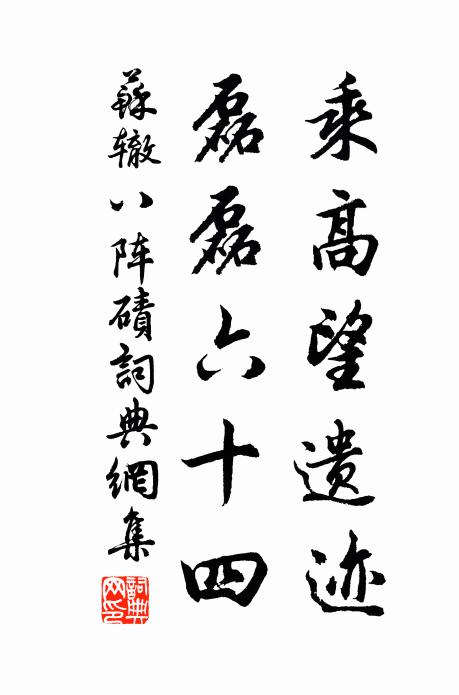 乘高望遗迹
磊磊六十四
蘇辙八阵磧詞典網集
詞典网印